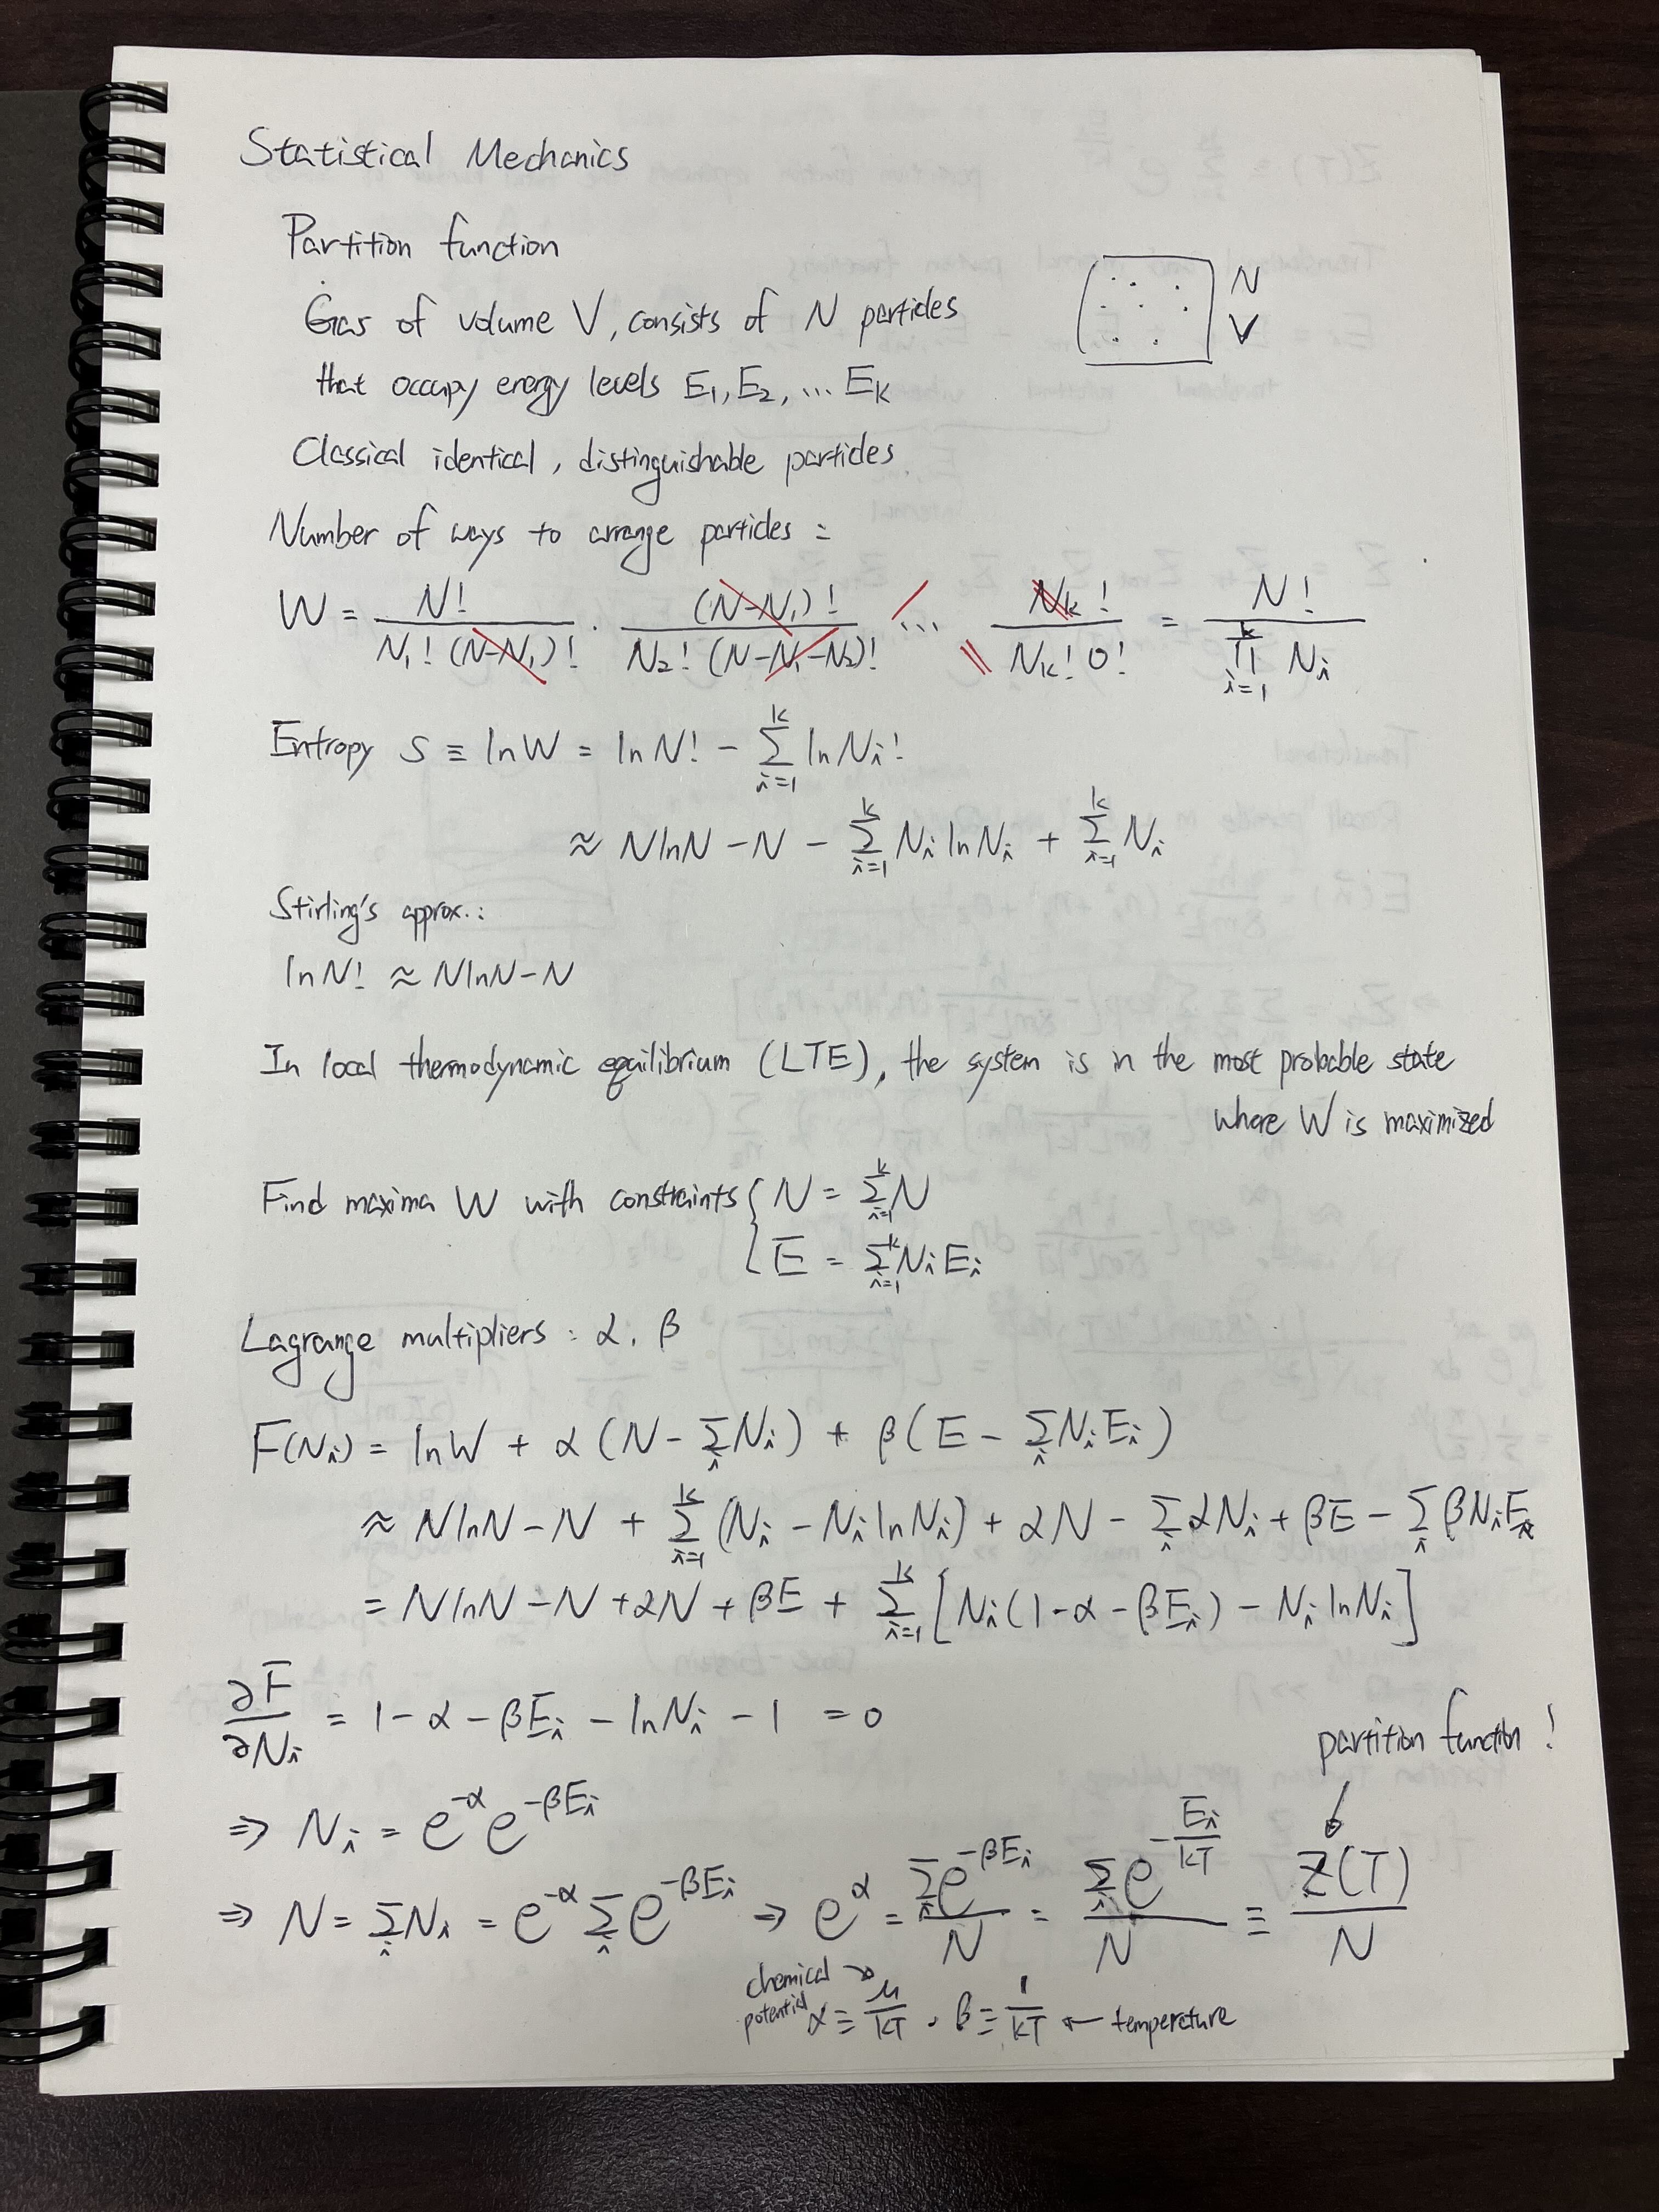 Statistical Mechanics
Partition function
Gas of volume V, consists of N particles
that occupy energy levels E₁, E₂, ... E_k
N
V
Classical identical, distinguishable particles
Number of ways to arrange particles :
W = N! / (N₁! (N-N₁)!) · (N-N₁)! / (N₂! (N-N₁-N₂)!) ... N_k! / (N_k! 0!) = N! / ∏_{i=1}^{k} N_i
Entropy S ≡ ln W = ln N! - Σ_{i=1}^{k} ln N_i!
≈ N ln N - N - Σ_{i=1}^{k} N_i ln N_i + Σ_{i=1}^{k} N_i
Stirling's approx.:
ln N! ≈ N ln N - N
In local thermodynamic equilibrium (LTE), the system is in the most probable state
where W is maximized
Find maxima W with constraints { N = Σ_{i=1}^{k} N
E = Σ_{i=1}^{k} N_i E_i
Lagrange multipliers : α, β
F(N_i) = ln W + α (N - Σ_i N_i) + β (E - Σ_i N_i E_i)
≈ N ln N - N + Σ_{i=1}^{k} (N_i - N_i ln N_i) + αN - Σ_i αN_i + βE - Σ_i βN_i E_i
= N ln N - N + αN + βE + Σ_{i=1}^{k} [N_i (1 - α - βE_i) - N_i ln N_i]
∂F/∂N_i = 1 - α - βE_i - ln N_i - 1 = 0
partition function !
⇒ N_i = e^{-α} e^{-βE_i}
⇒ N = Σ_i N_i = e^{-α} Σ_i e^{-βE_i} ⇒ e^α = Σ_i e^{-βE_i} / N = Σ_i e^{-E_i/kT} / N ≡ Z(T) / N
chemical
potential α ≡ μ/kT , β ≡ 1/kT ← temperature